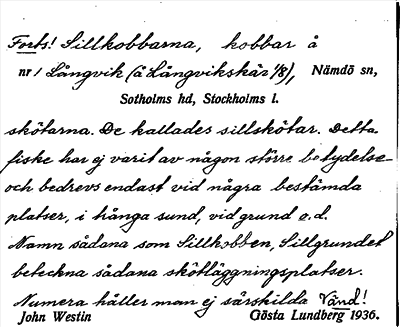 Forts! Sillkobbarna, kobbar å
nr 1 Långvik (å Långvikskär 1/8), Nämdö sn,
Sotholms hd, Stockholms l.
skötarna. De kallades sillskötar. Detta
fiske har ej varit av någon större betydelse
och bedrevs endast vid några bestämda
platser, i trånga sund, vid grund o.d.
Namn sådana som Sillkobben, Sillgrundet
beteckna sådana skötläggningsplatser.
Numera håller man ej särskilda Vänd!
John Westin Gösta Lundberg 1936.